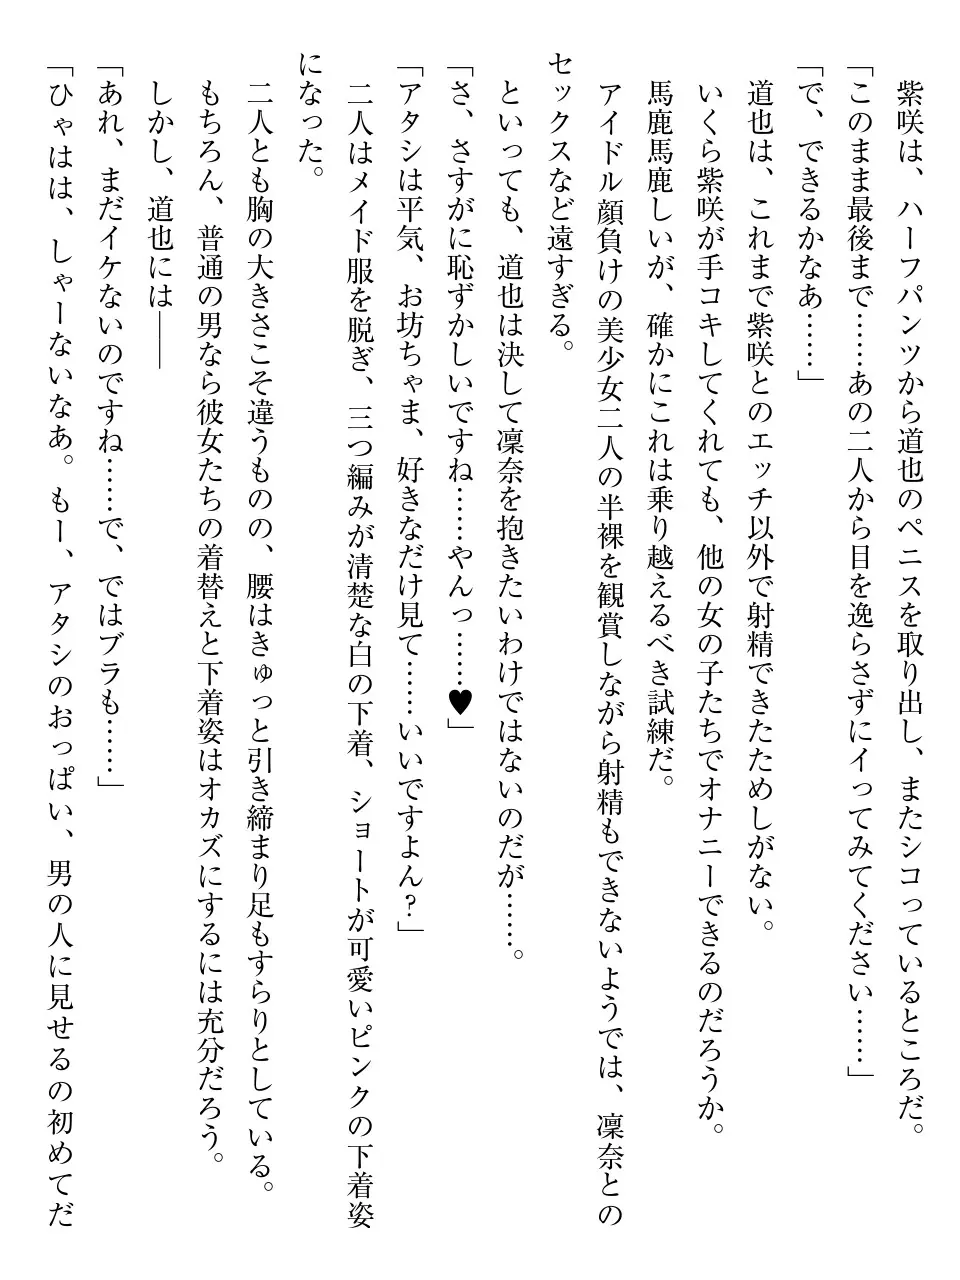 紫咲は、ハーフパンツから道也のペニスを取り出し、またシコっているところだ。
「このまま最後まで……あの二人から目を逸らさずにイってみてください……」
「で、できるかなあ……」
道也は、これまで紫咲とのエッチ以外で射精できたためしがない。
いくら紫咲が手コキしてくれても、他の女の子たちでオナニーできるのだろうか。
馬鹿馬鹿しいが、確かにこれは乗り越えるべき試練だ。
アイドル顔負けの美少女二人の半裸を観賞しながら射精もできないようでは、凜奈との
セックスなど遠すぎる。
といっても、道也は決して凜奈を抱きたいわけではないのだが……。
「さ、さすがに恥ずかしいですね……やんっ……♥」
「アタシは平気、お坊ちゃま、好きなだけ見て……いいですよん？」
二人はメイド服を脱ぎ、三つ編みが清楚な白の下着、ショートが可愛いピンクの下着姿
になった。
二人とも胸の大きさこそ違うものの、腰はきゅっと引き締まり足もすらりとしている。
もちろん、普通の男なら彼女たちの着替えと下着姿はオカズにするには充分だろう。
しかし、道也には――
「あれ、まだイケないのですね……で、ではブラも……」
「ひゃはは、しゃーないなあ。もー、アタシのおっぱい、男の人に見せるの初めてだ